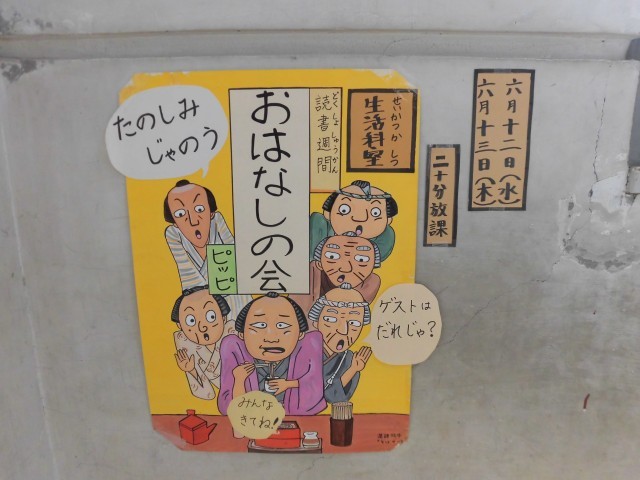 たのしみ
じゃのう
おはなしの会
どくしょしゅうかん
読書週間
せいかつかしつ
生活科室
六月十二日(水)
六月十三日(木)
二十分放課
ピッピ
ゲストは
だれじゃ?
みんな
きてね!